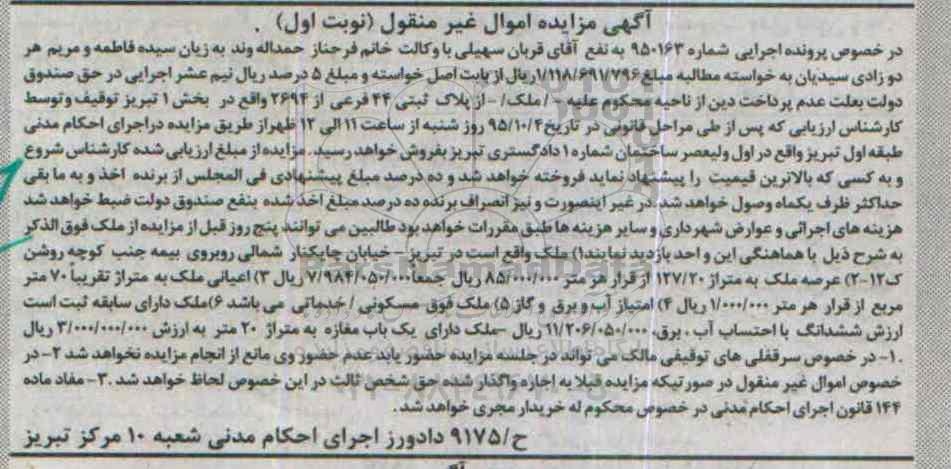 آگهی مزایده اموال غیر منقول (نوبت اول)
در خصوص پرونده اجرایی شماره ۹۵۰۱۶۳ به نفع آقای قربان سهیلی با وکالت خانم فرحناز حمداله وند به زیان سیده فاطمه و مریم هر
دو زادی سیدیان به خواسته مطالبه مبلغ ۱/۱۱۸/۶۹۱/۷۹۶ ریال از بابت اصل خواسته و مبلغ ۵ درصد ریال نیم عشر اجرایی در حق صندوق
دولت بعلت عدم پرداخت دین از ناحیه محکوم علیه - /ملک/ - از پلاک ثبتی ۴۴ فرعی از ۲۶۹۴ واقع در بخش ۱ تبریز توقیف و توسط
کارشناس ارزیابی که پس از طی مراحل قانونی در تاریخ ۹۵/۱۰/۴ روز شنبه از ساعت ۱۱ الی ۱۲ ظهر از طریق مزایده در اجرای احکام مدنی
طبقه اول تبریز واقع در اول ولیعصر ساختمان شماره ۱ دادگستری تبریز بفروش خواهد رسید. مزایده از مبلغ ارزیابی شده کارشناس شروع
و به کسی که بالاترین قیمیت را پیشنهاد نماید فروخته خواهد شد و ده درصد مبلغ پیشنهادی فی المجلس از برنده اخذ و به ما بقی
حداکثر ظرف یکماه وصول خواهد شد. در غیر اینصورت و نیز انصراف برنده ده درصد مبلغ اخذ شده بنفع صندوق دولت ضبط خواهد شد
هزینه های اجرائی و عوارض شهرداری و سایر هزینه ها طبق مقررات خواهد بود طالبین می توانند پنج روز قبل از مزایده از ملک فوق الذکر
به شرح ذیل با هماهنگی این و احد بازدید نمایند ۱) ملک واقع است در تبریز - خیابان چایکنار شمالی روبروی بیمه جنب کوچه روشن
ک۱۲-۲) عرصه ملک به متراژ ۱۳۷/۲۰ از قرار هر متر ۸۵/۰۰۰/۰۰۰ ریال جمعا ۷/۹۸۴/۰۵۰/۰۰۰ ریال ۳) اعیانی ملک به متراژ تقریباً ۷۰ متر
مربع از قرار هر متر ۱/۰۰۰/۰۰۰ ریال ۴) امتیاز آب و برق و گاز ۵) ملک فوق مسکونی / خدماتی می باشد ۶) ملک دارای سابقه ثبت است
ارزش ششدانگ با احتساب آب، برق، ۱۱/۲۰۶/۰۵۰/۰۰۰ ریال - ملک دارای یک باب مغازه به متراژ ۲۰ متر به ارزش ۳/۰۰۰/۰۰۰/۰۰۰ ریال
.۱- در خصوص سرقفلی های توقیفی مالک می تواند در جلسه مزایده حضور یابد عدم حضور وی مانع از انجام مزایده نخواهد شد ۲- در
خصوص اموال غیر منقول در صورتیکه مزایده قبلا به اجاره واگذار شده حق شخص ثالث در این خصوص لحاظ خواهد شد .۳- مفاد ماده
۱۴۴ قانون اجرای احکام مدنی در خصوص محکوم له خریدار مجری خواهد شد.
ح/۹۱۷۵ دادورز اجرای احکام مدنی شعبه ۱۰ مرکز تبریز